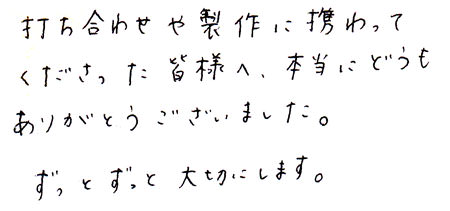 打ち合わせや製作に携わって
くださった皆様へ、本当にどうも
ありがとうございました。
ずっとずっと大切にします。